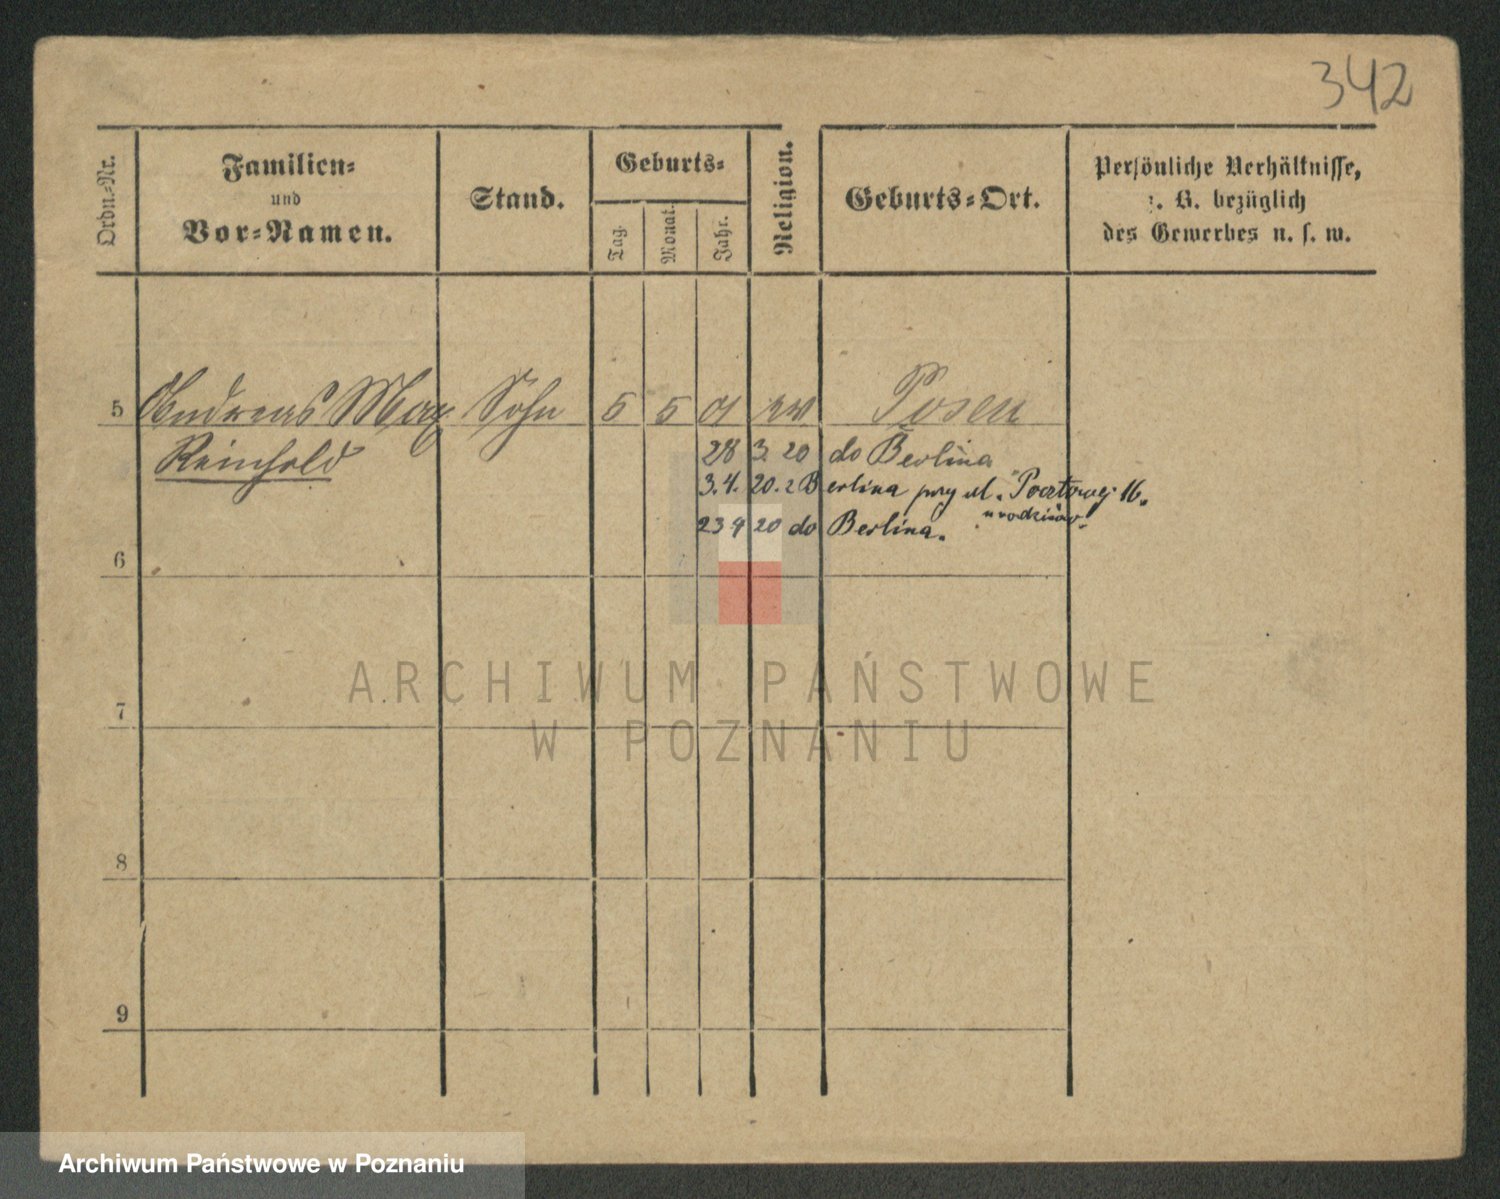 342
Ordn.-Nr.
Familien-
und
Vor-Namen.
Stand.
Geburts-
Tag.
Monat.
Jahr.
Religion.
Geburts-Ort.
Persönliche Verhältnisse,
z. B. bezüglich
des Gewerbes u. s. w.
5 Andreas Max Sohn 5 5 01 ev Posen
Reinhold
28 3. 20 do Berlina
3.4. 20. z Berlina przy ul. Pocztowej 16.
u rodziców.
23 9 20 do Berlina.
6
7
8
9
ARCHIWUM PAŃSTWOWE
W POZNANIU
Archiwum Państwowe w Poznaniu